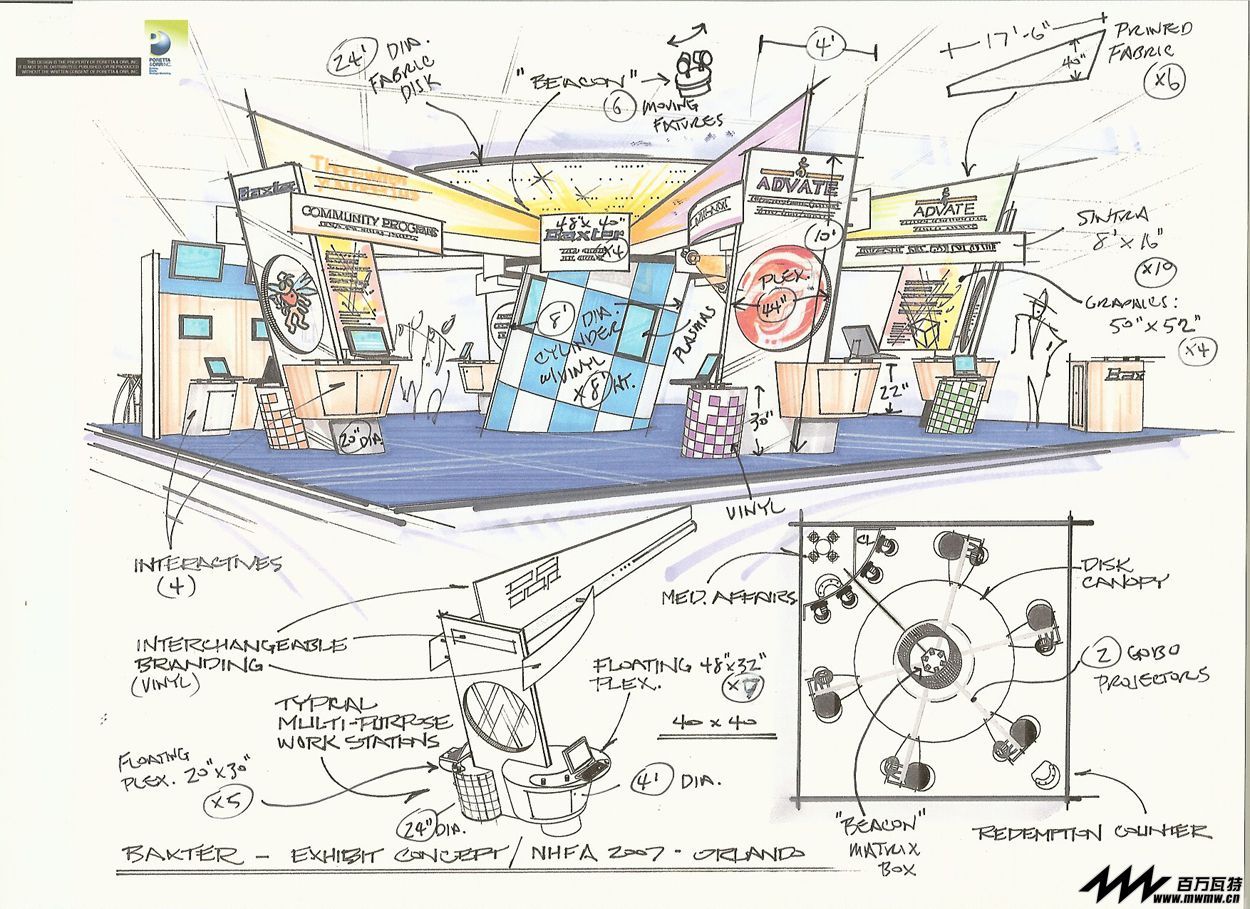 THIS DESIGN IS THE PROPERTY OF PORETTA & ORR, INC.
IT IS NOT TO BE DISTRIBUTED, PUBLISHED, OR REPRODUCED
WITHOUT THE WRITTEN CONSENT OF PORETTA & ORR, INC.
PORETTA
& ORR, INC.
24' DIA.
FABRIC
DISK
"BEACON"
6
MOVING
FIXTURES
4'
17'-6"
40"
PRINTED
FABRIC
X6
Baxter
COMMUNITY PROGRAMS
48"x 40"
Baxter
X4
ADVATE
10'
PLEX.
44"
ADVATE
SINTRA
8' x 16"
X10
GRAPHICS:
50" x 52"
X4
8' DIA.
CYLINDER
W/VINYL
X 8' HT.
PLASMAS
20" DIA
30"
22"
Bax
VINYL
INTERACTIVES
(4)
INTERCHANGEABLE
BRANDING
(VINYL)
TYPICAL
MULTI-PURPOSE
WORK STATIONS
FLOATING
PLEX. 20" x 30"
X5
24" DIA.
FLOATING 48"x32"
PLEX.
40 x 40
4' DIA.
MED. AFFAIRS
CL
DISK
CANOPY
2 GOBO
PROJECTORS
"BEACON"
MATRIX
BOX
REDEMPTION COUNTER
BAXTER - EXHIBIT CONCEPT / NHFA 2007 - ORLANDO
百万瓦特
www.mwmw.cn